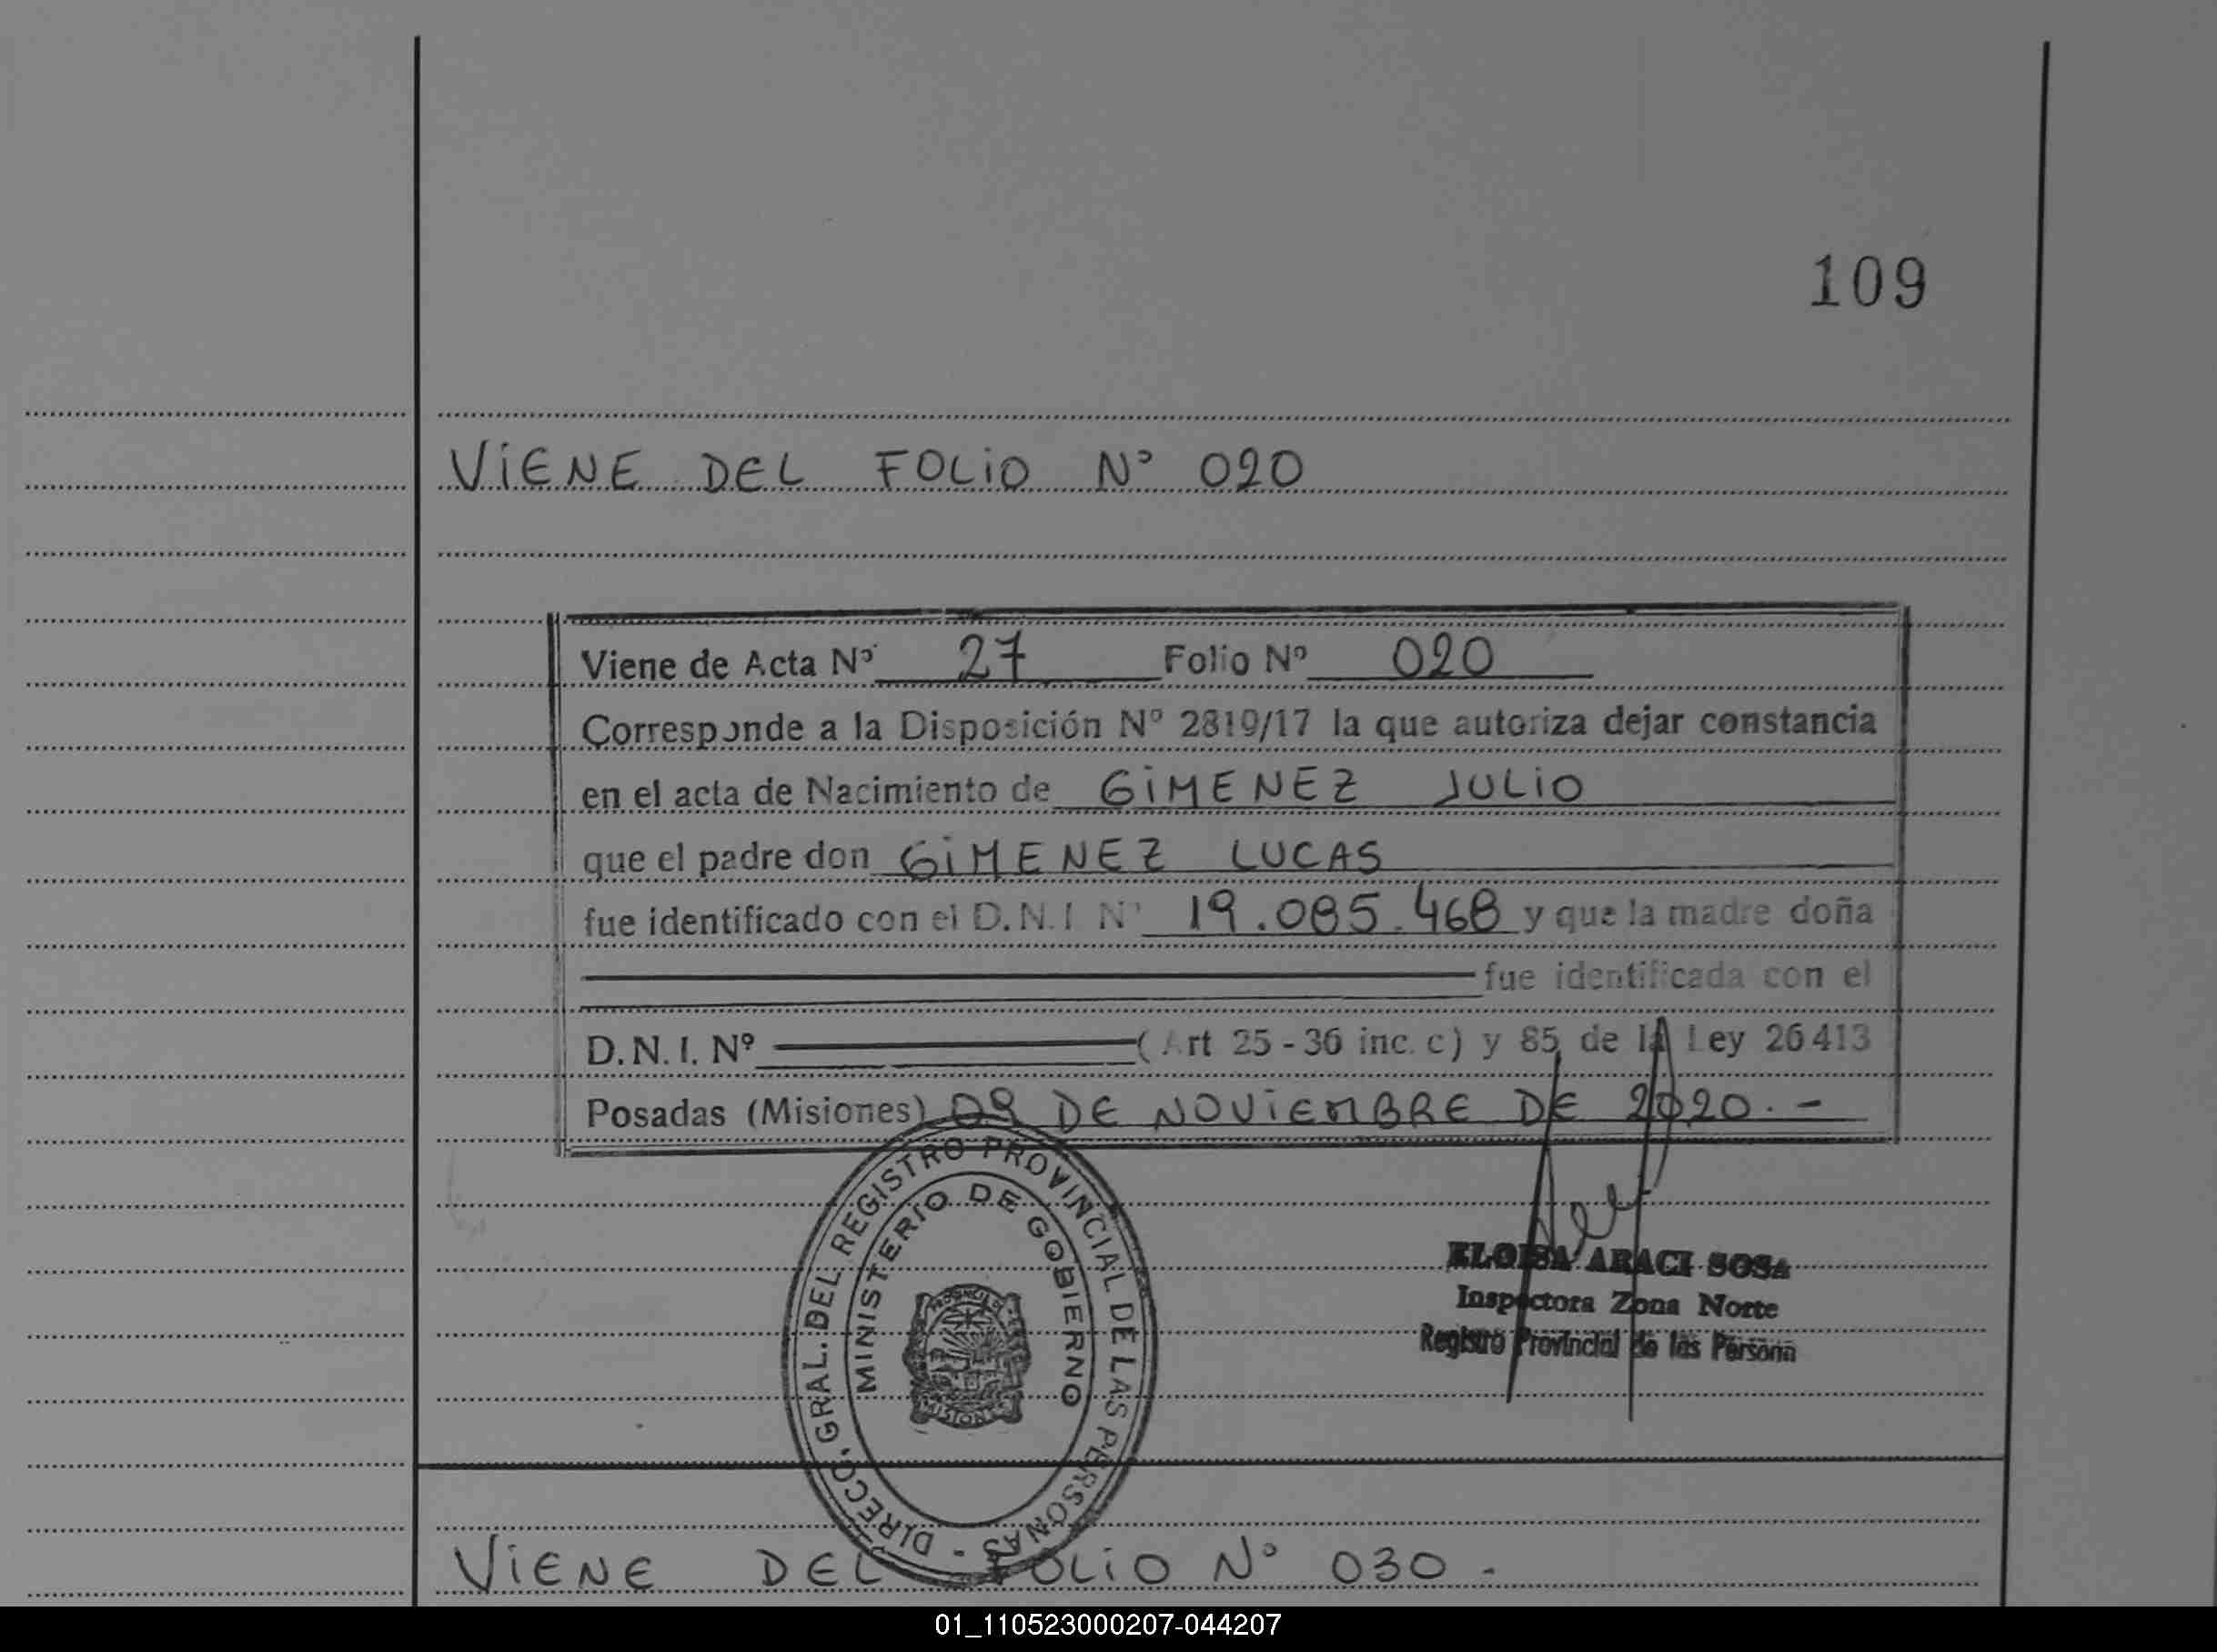 109
VIENE DEL FOLIO Nº 020
Viene de Acta Nº 27 Folio Nº 020
Corresponde a la Disposición Nº 2819/17 la que autoriza dejar constancia
en el acta de Nacimiento de GIMENEZ JULIO
que el padre don GIMENEZ LUCAS
fue identificado con el D.N.I Nº 19.085.468 y que la madre doña
fue identificada con el
D.N.I. Nº (Art 25-36 inc. c) y 85 de la Ley 26413
Posadas (Misiones) 09 DE NOVIEMBRE DE 2020.-
DIRECC. GRAL. DEL REGISTRO PROVINCIAL DE LAS PERSONAS -
MINISTERIO DE GOBIERNO
PROVINCIA DE
MISIONES
ELOISA ARACI SOSA
Inspectora Zona Norte
Registro Provincial de las Persona
VIENE DEL FOLIO Nº 030-
01_110523000207-044207